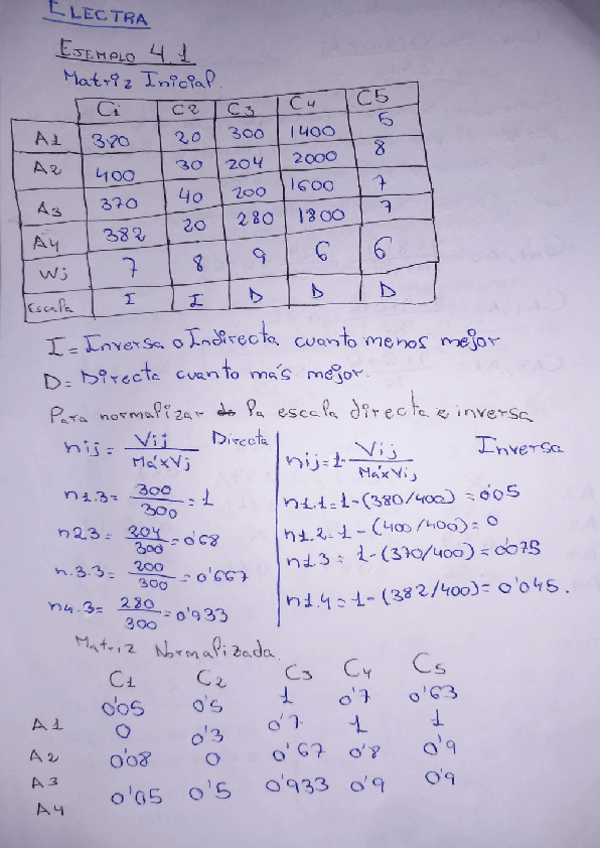 ELECTRA
EJEMPLO 4.1
Matriz Inicial.
C1 C2 C3 C4 C5
A1 380 20 300 1400 5
A2 400 30 204 2000 8
A3 370 40 200 1600 7
A4 382 20 280 1800 7
Wj 7 8 9 6 6
Escala I I D D D
I = Inversa o Indirecta cuanto menos mejor
D = Directa cuanto más mejor.
Para normalizar la escala directa e inversa
nij = Vij / Máx Vj Directa
n1.3 = 300/300 = 1
n2.3 = 204/300 = 0'68
n.3.3 = 200/300 = 0'667
n4.3 = 280/300 = 0'933
nij = 1- Vij / Máx Vij Inversa
n1.1 = 1-(380/400) = 0'05
n1.2 = 1-(400/400) = 0
n1.3 = 1-(370/400) = 0'075
n1.4 = 1-(382/400) = 0'045.
Matriz Normalizada.
C1 C2 C3 C4 C5
0'05 0'5 1 0'7 0'63
A1 0 0'3 0'7 1 1
A2 0'08 0 0'67 0'8 0'9
A3 0'05 0'5 0'933 0'9 0'9
A4